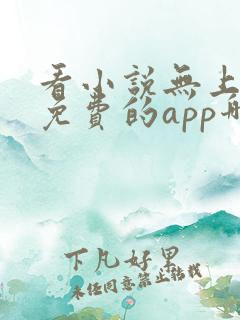 看小說無上
免費的app
下凡好男
未经同意禁止转载